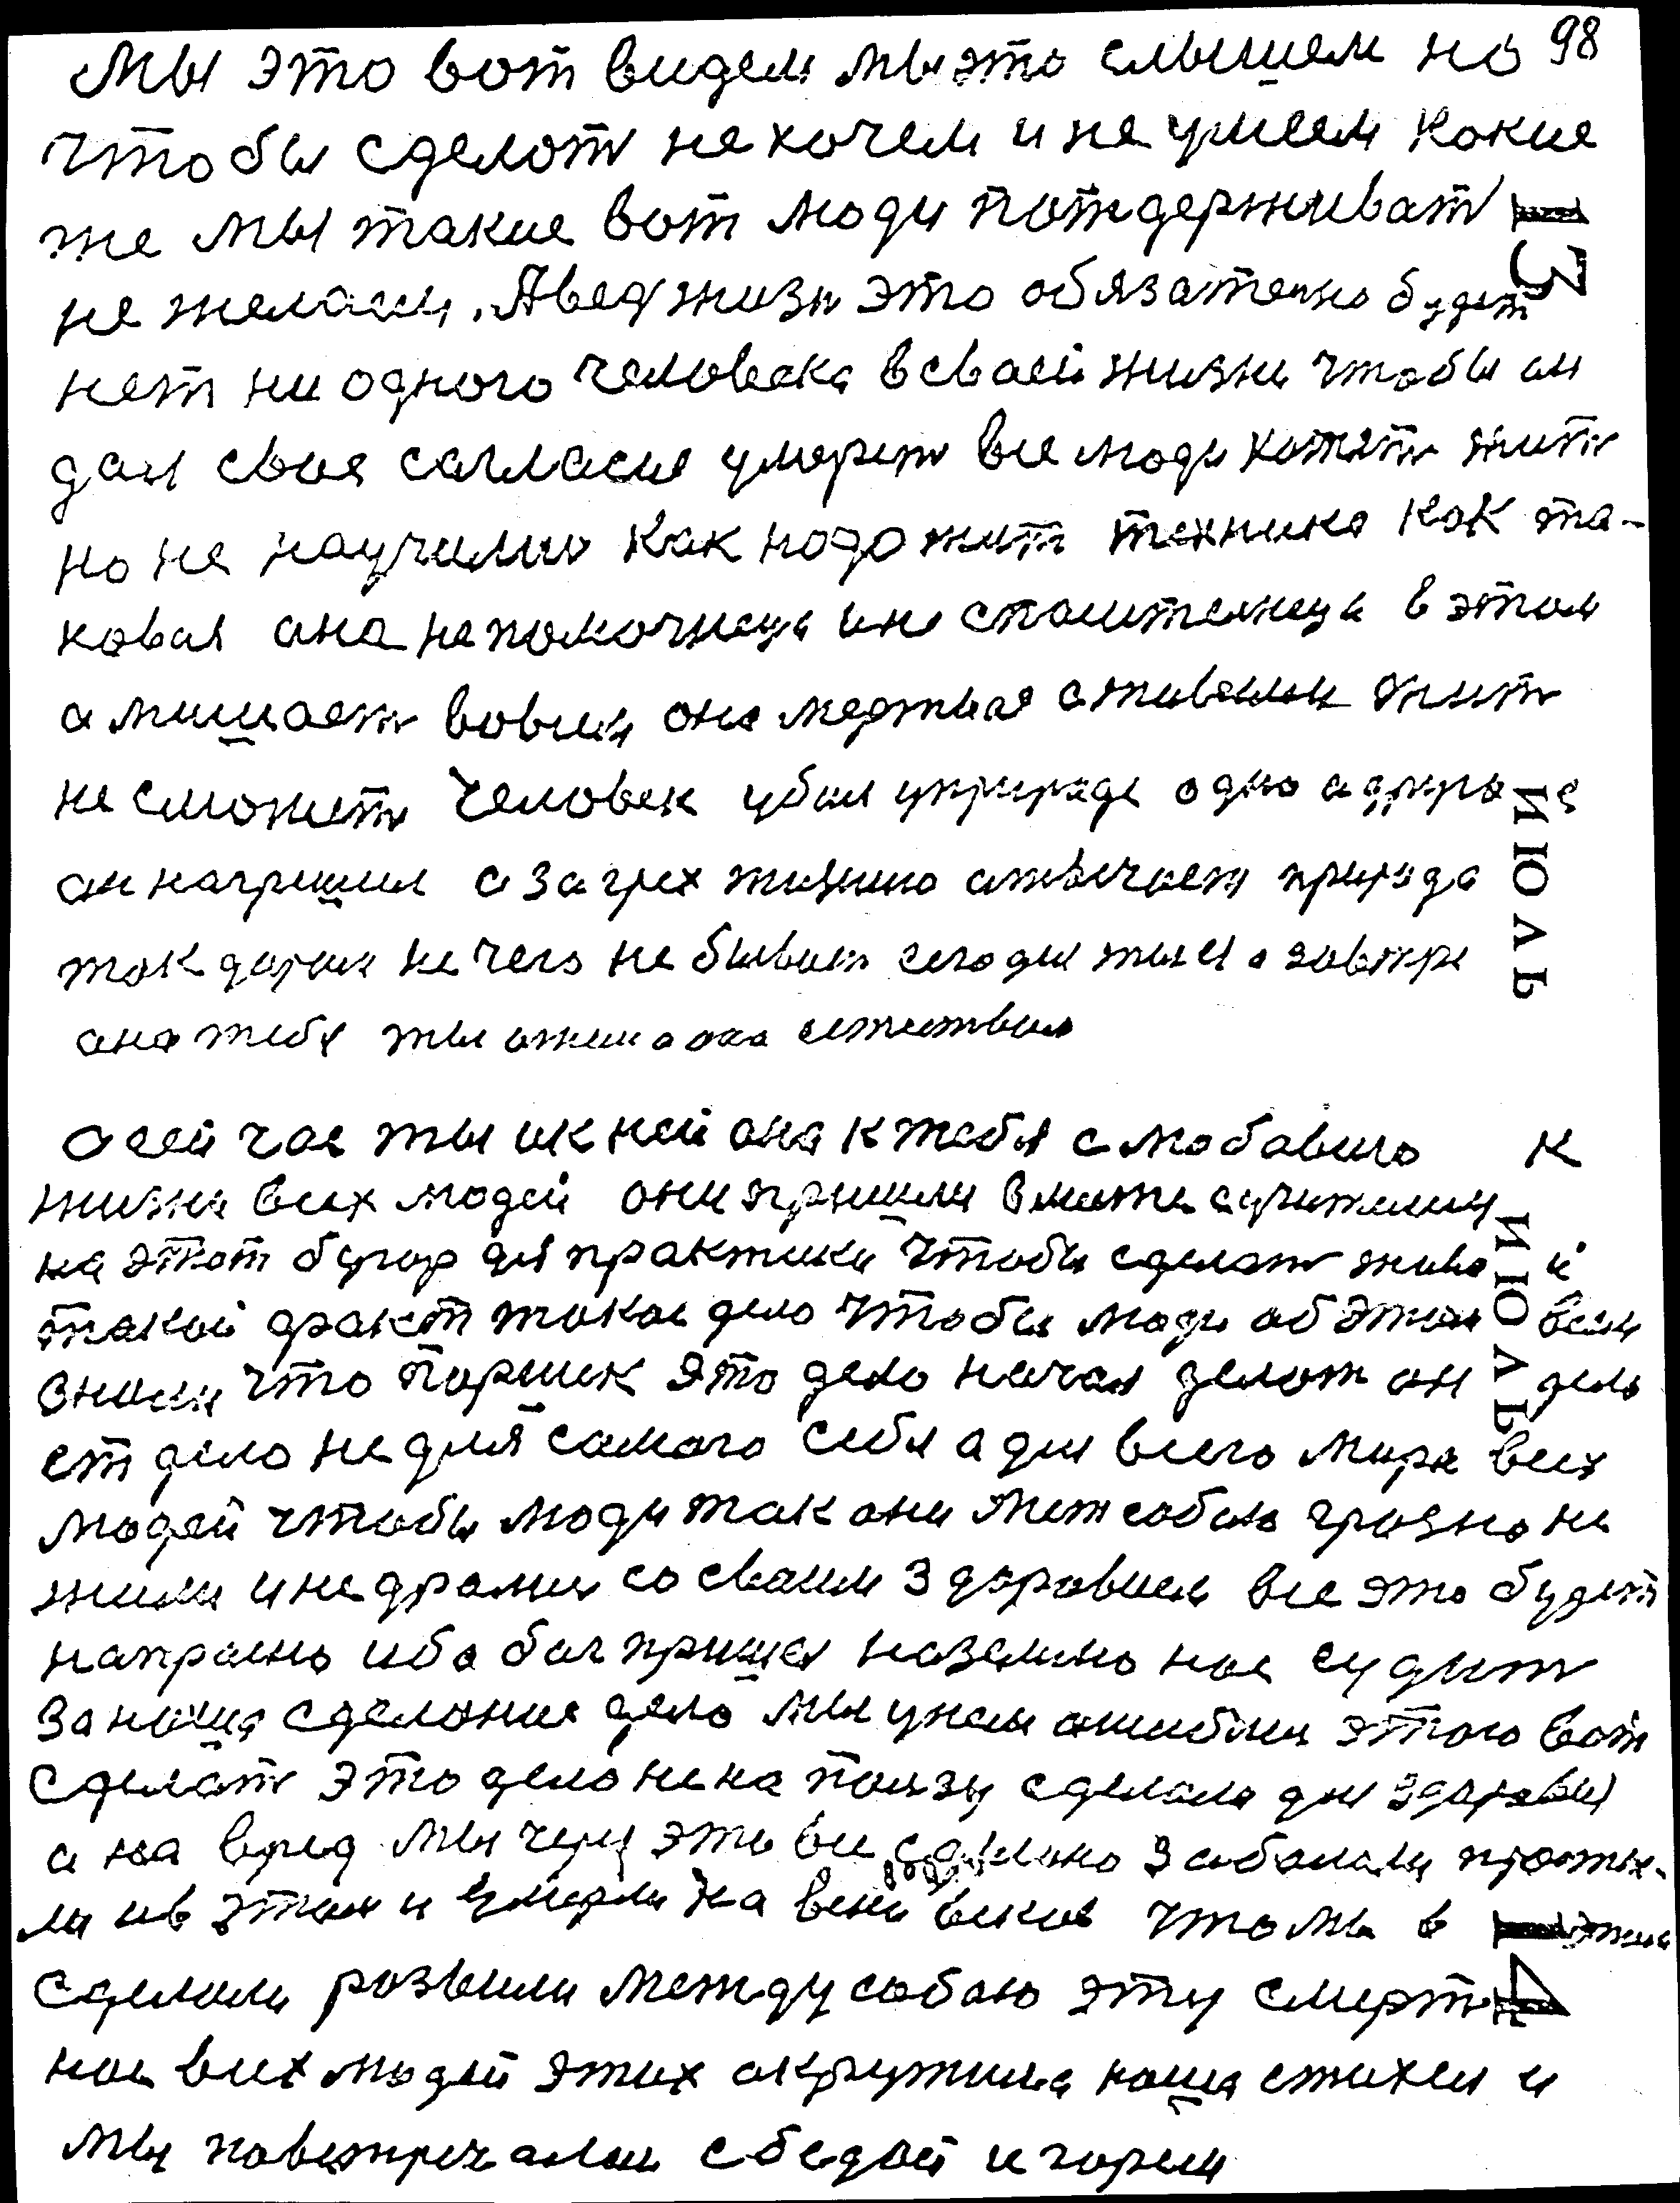 98
Мы это вот видем мы это слышем но
чтобы сделоть не хочем и не умеем Какие
же мы такие вот люди потдерживать
не желаем. А ведь жизнь это обязательно будет
нет ни одного человека в сваей жизни чтобы он
дал свое сагласие умереть все люди хотять жить
но не научились Как нодо жить техника как та-
ковая ана не помочнеца и не споштелнеца в этом
а мишаеть вовсем она мертвая а живелом жить
не сможить Человек убил у природе одно а другое
ан нагришил а за грех жизнию атвичаеть природа
ток даром не чего не бываит сегодня ты ее а завтри
ана тебя ты ожил а она естиствия
ИЮЛЬ
13
а сей час ты ик ней она к тебя с любавию К
жизни всех людей они пришли вмисти с учителим
на этот бугор для практики чтобы сделоть живой
такой факт токое дело чтобы люди об этом всем
знали что Паршек это дело начал делоть он дела
ет дело не для самого себя а для всего мира всех
людей чтобы люди так они меж собою грязно не
жили и не дрались со сваим здоровием все это будить
напрасно ибо бог пришел на землю нас судить
за нашия сделоние дело мы унем ошиблись этого вот
сделать это дело не на ползу сделали для здоровия
а на вред мы через это все сделано заболели просты-
ли и в этом и умерли на веки виков что мы в жизни
сделоли розвили между собаю эту смерть
нас всих людей этих акружила наша стихея и
мы повстречались с бедой и горем
ИЮЛЬ
14